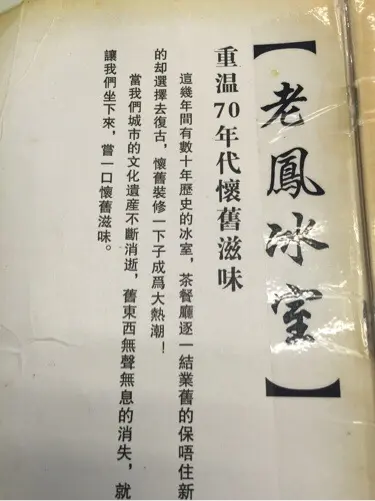 【老鳳冰室】
重温70年代懷舊滋味
這幾年間有數十年歷史的冰室，茶餐廳逐一結業舊的保唔住新
的却選擇去復古，懷舊裝修一下子成爲大熱潮！
當我們城市的文化遺産不斷消逝，舊東西無聲無息的消失，就
讓我們坐下來，嘗一口懷舊滋味。